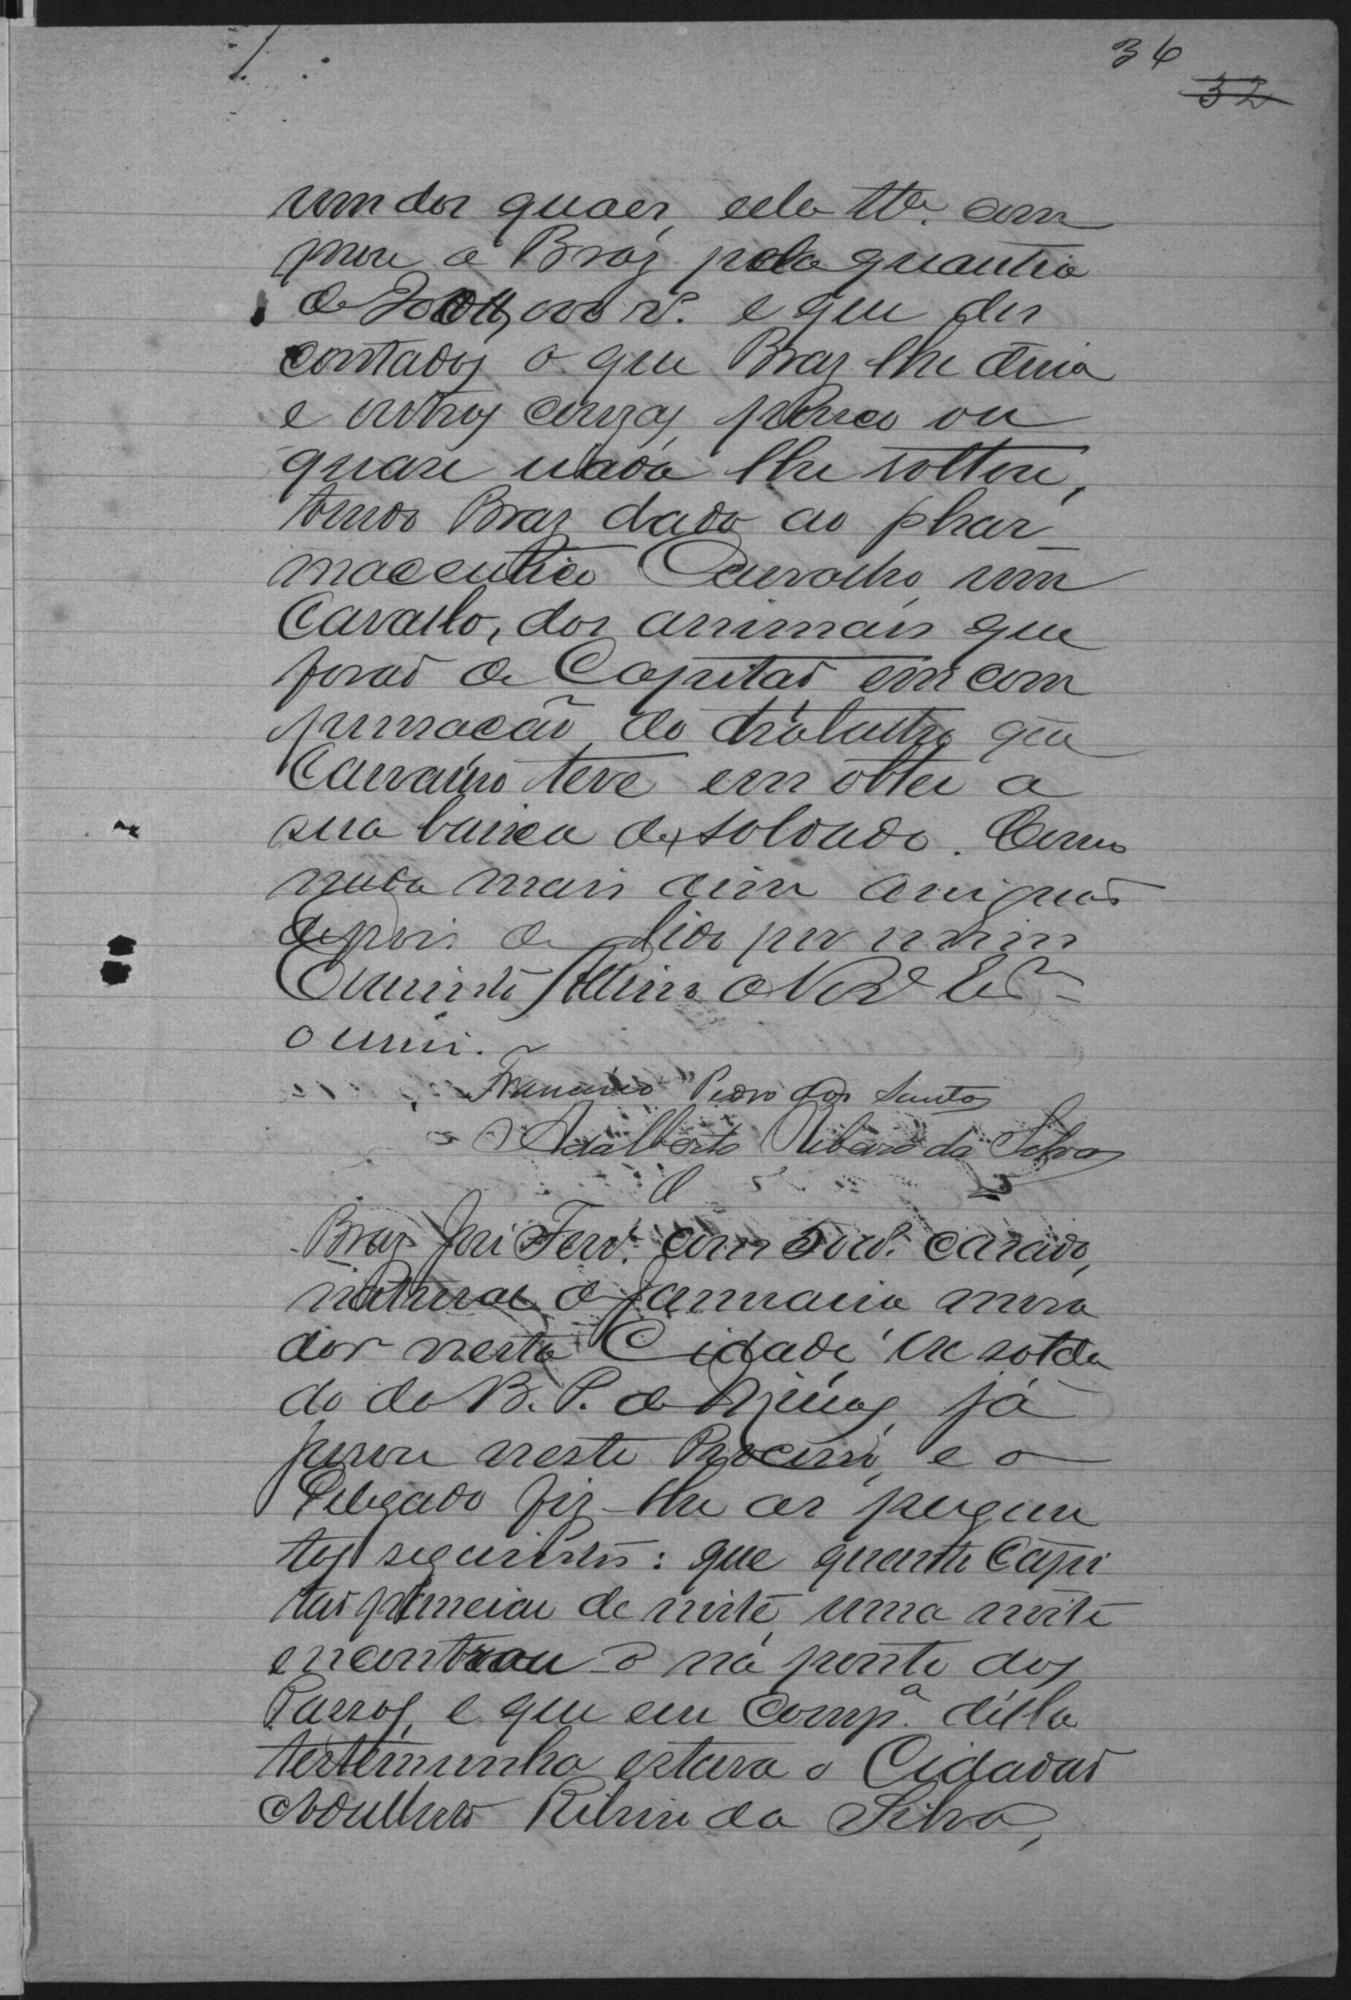 36
32
um dos quaes, ella tta. com
prou a Braz pela quantia
de 200$000 rs. e que des
contados o que Braz lhe devia
e outras couzas, pouco ou
quase nada lhe voltou,
tendo Braz dado ao phar
maceutico Carvalho, um
Cavallo, dos animais que
forão de Capitão, em com
pensação do trabalho que
Carvalho teve em obter a
sua baixa de soldado. Como
nada mais disse assignão
depois de lido por mim
o escrevi.
Francisco Pedro dos Santos
Adalberto Ribeiro da Silva
Braz José Ferra. com annos. Cazado,
natural de Januaria mora
dor nesta Cidade, ex solda
do do B. P. de Minas, já
jurou neste Processo, e o
Delegado fez-lhe as pergun
tas seguintes: que quanto Capi
tão passeiar de noite, uma noite
encontrou-o na ponte dos
Passos, e que em Compa. d'ella
testemunha estava o Cidadão
Adalberto Ribeiro da Silva,